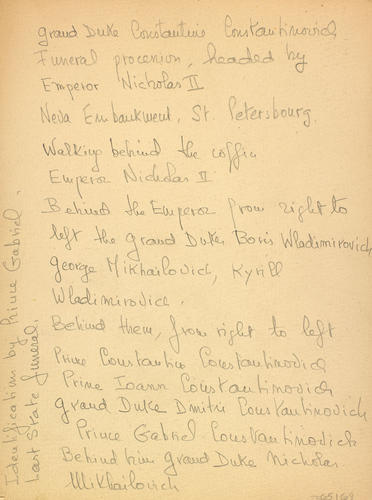 Grand Duke Constantine Constantinovich
Funeral procession, headed by
Emperor Nicholas II
Neva Embankment, St. Petersburg.
Walking behind the coffin
Emperor Nicholas II
Behind the Emperor from right to
left the Grand Dukes Boris Wladimirovich,
George Mikhailovich, Kyrill
Wladimirovich.
Behind them, from right to left
Prince Constantin Constantinovich
Prince Ioann Constantinovich
Grand Duke Dmitri Constantinovich
Prince Gabriel Constantinovich
Behind him Grand Duke Nicholas
Mikhailovich
Identification by Prince Gabriel.
Last State funeral.